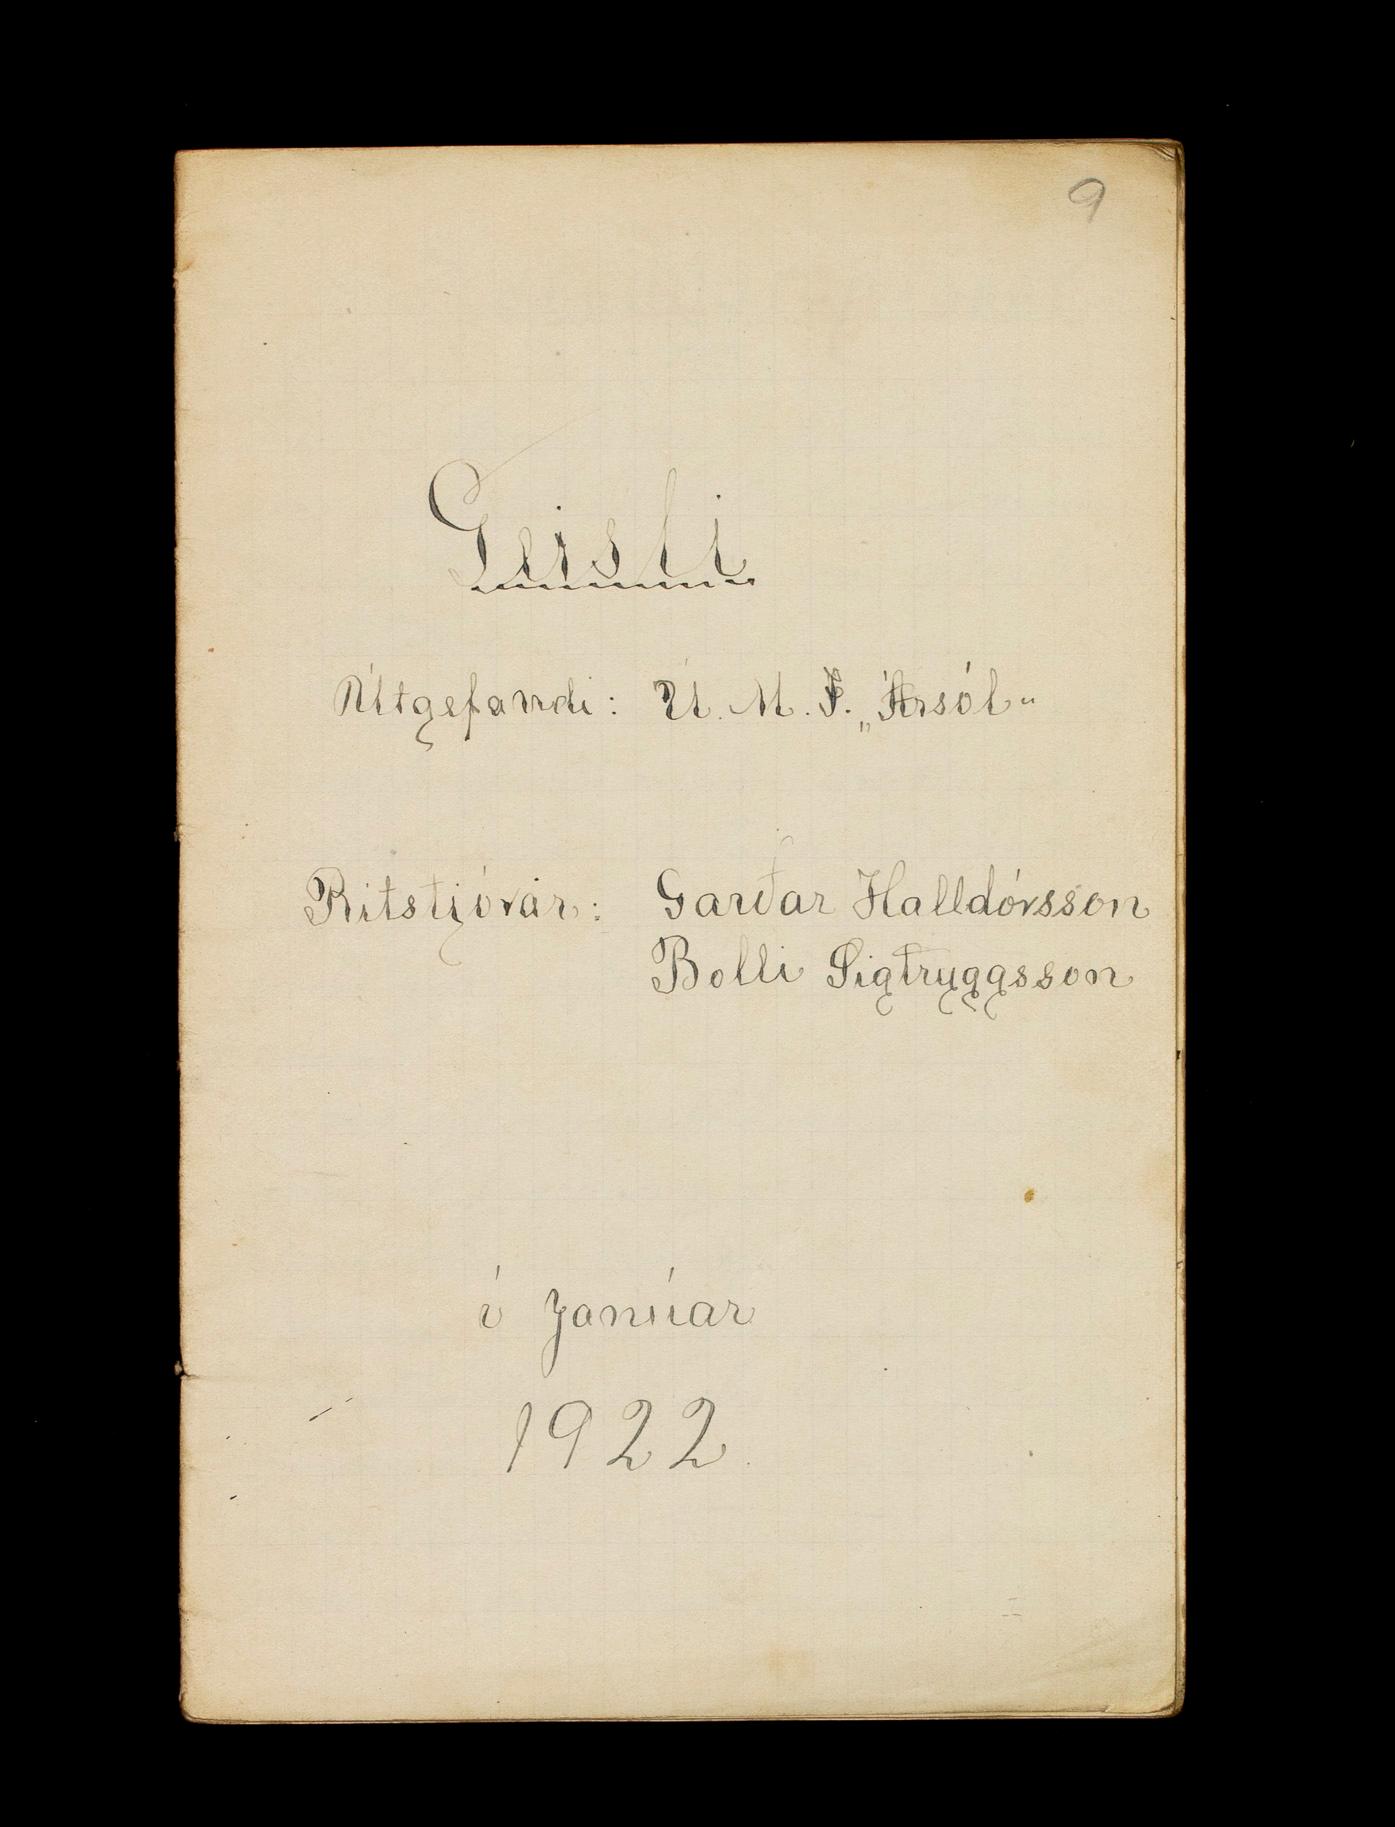 9
Geisli
Útgefandi: U. M. F. „Ársól“
Ritstjórar: Garðar Halldórsson
Bolli Sigtryggsson
í Janúar
1922.